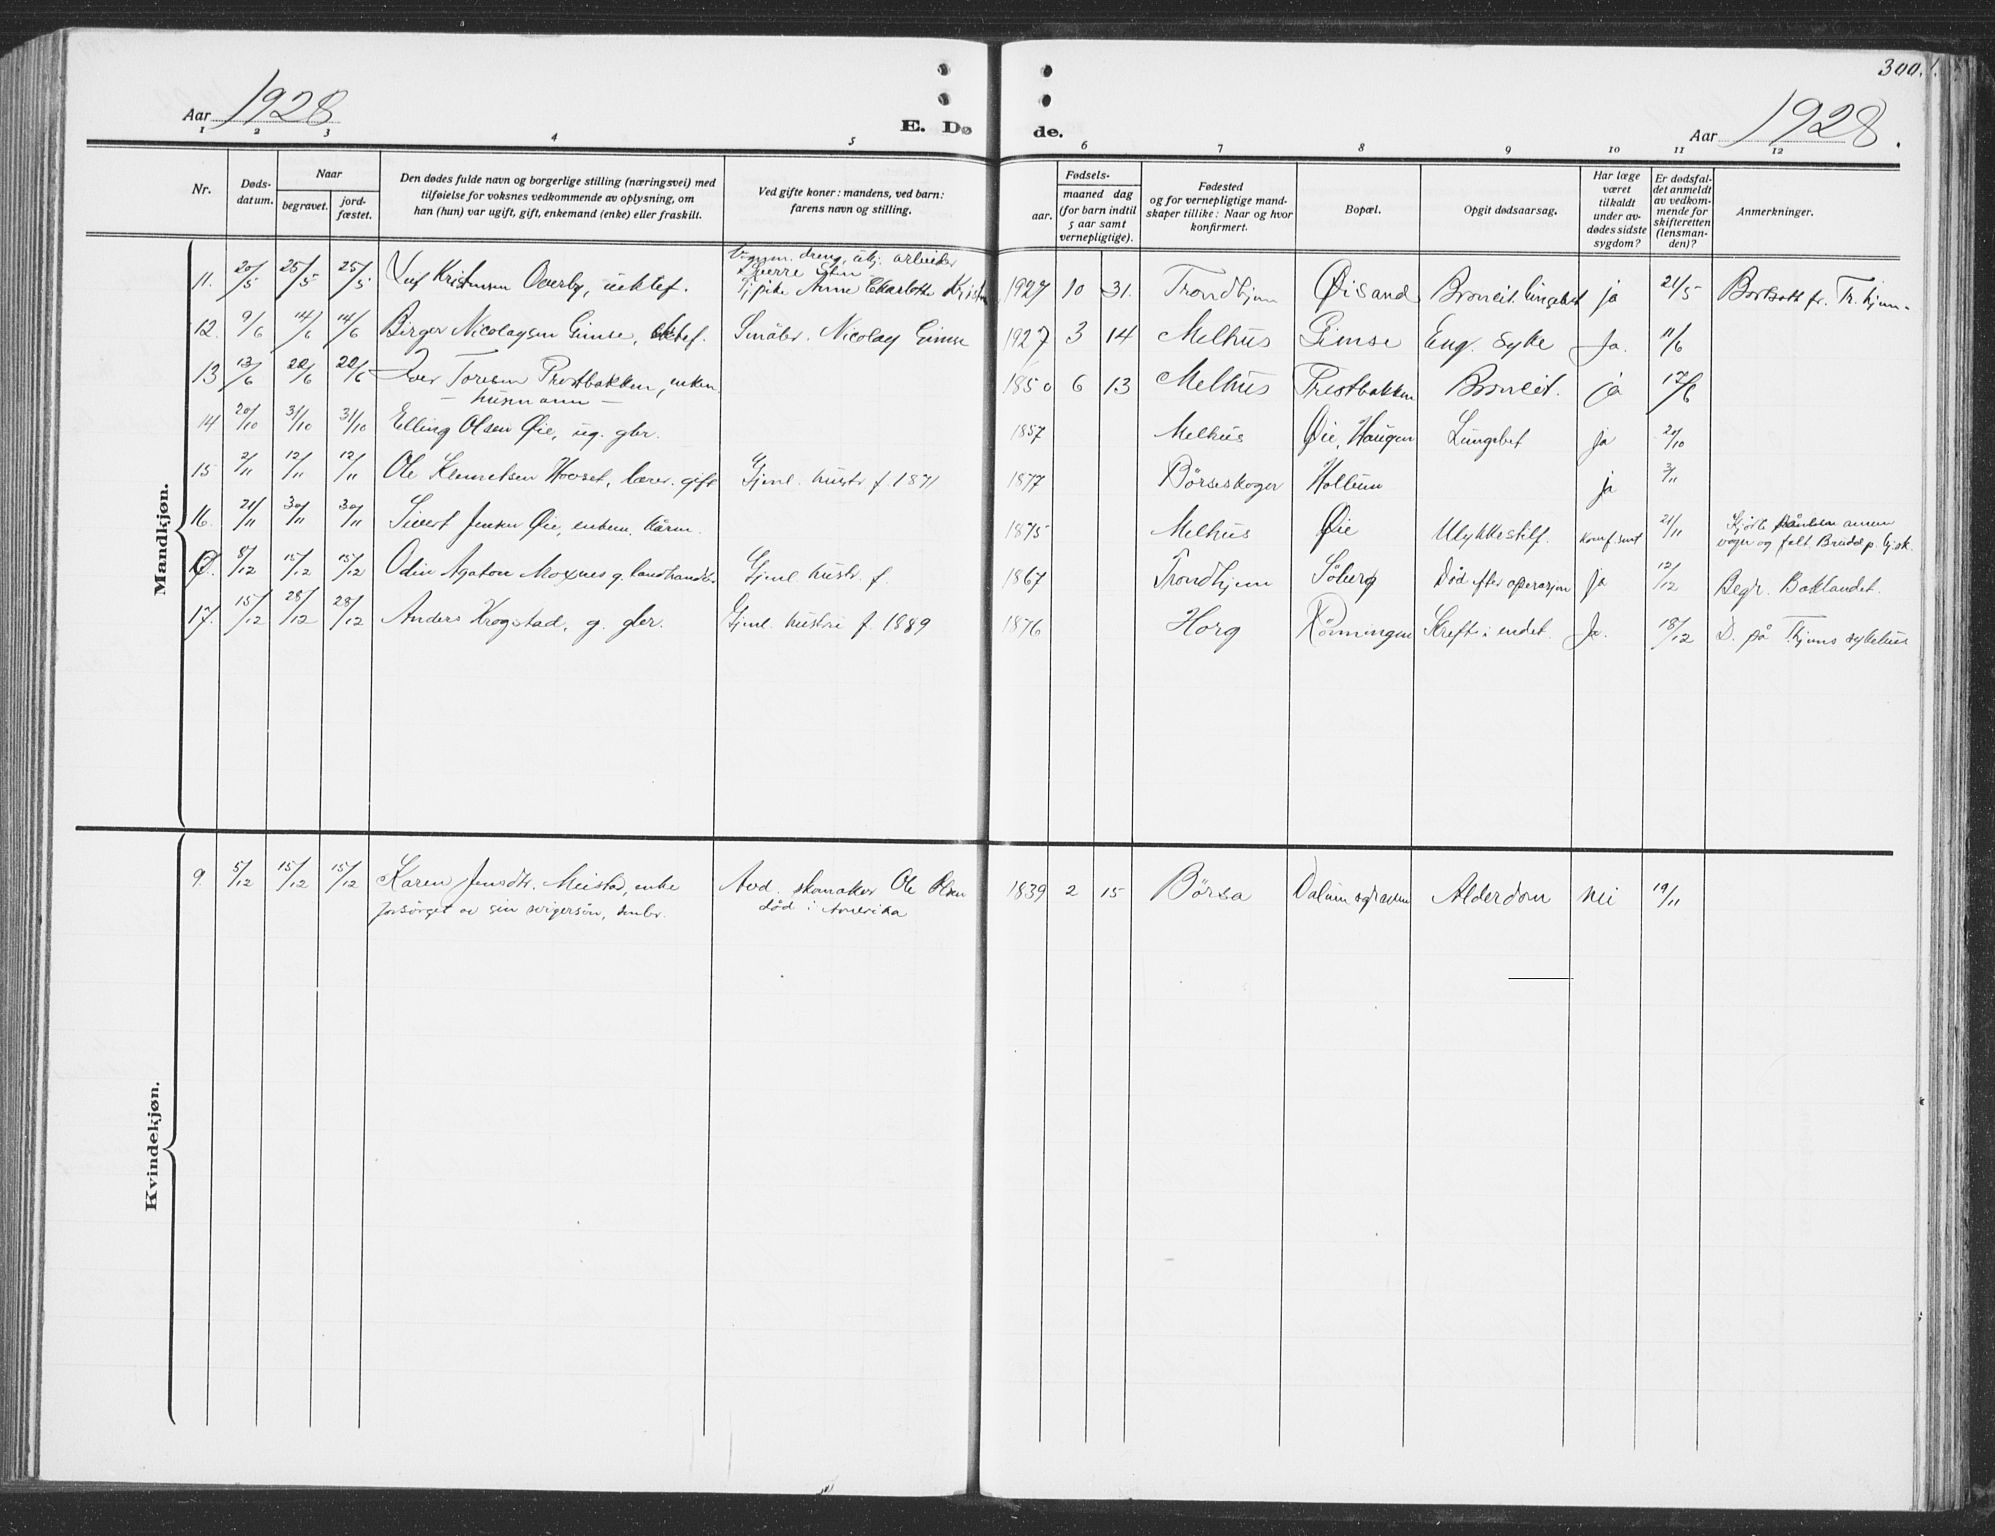 300.
Aar 1928
E. Dø de.
Aar 1928.
1 2 3 4 5 6 7 8 9 10 11 12
Nr.
Døds-
datum.
Naar
begravet.
jord-
fæstet.
Den dødes fulde navn og borgerlige stilling (næringsvei) med
tilføielse for voksnes vedkommende av oplysning, om
han (hun) var ugift, gift, enkemand (enke) eller fraskilt.
Ved gifte koner: mandens, ved barn:
farens navn og stilling.
Fødsels-
aar.
maaned dag
(for barn indtil
5 aar samt
vernepligtige).
Fødested
og for vernepligtige mand-
skaper tillike: Naar og hvor
konfirmert.
Bopæl.
Opgit dødsaarsag.
Har læge
været
tilkaldt
under av-
dødes sidste
sygdom?
Er dødsfal-
det anmeldt
av vedkom-
mende for
skifteretten
(lensman-
den)?
Anmerkninger.
Mandkjøn.
11. 20/5 25/5 25/5 Leif Kristensen Overby, uektef. dreng, arbeider
Sverre
pike Anne Charlotte 1927 10 31. Trondhjem Øisand ja 21/5 fr. Tr.hjem
12. 9/6 14/6 14/6 Birger Nicolaysen Gimse, ektef. Småbr. Nicolay Gimse 1927 3 14 Melhus Gimse Eng. syke Ja. 11/6
13 13/6 20/6 20/6 Iver Toresen Prestbakken, enkem.
— husmann —
1850 6 13 Melhus Prestbakken Bronkit. ja 17/6
14 20/10 31/10 31/10 Elling Olsen Øie, ug. gbr. 1857 Melhus Øie, Haugen Lungebet ja 20/10
15 2/11 12/11 12/11 Ole Hovset, lærer, gift Gjenl. hustr. f 1871 1877 Børseskogn Hollum ja 3/11
16. 21/11 30/11 30/11 Sivert Jensen Øie, enkem. kårm. 1875 Melhus Øie Ulykkestilf. 21/11 Kjørte annen
vogn og falt. Brudd p. hj.sk.
Ø. 8/12 15/12 15/12 Odin Agaton Moxnes g. landhandler Gjenl. hustr. f. 1867 Trondhjem Søberg Død efter operasjon Ja 12/12 Begr. Baklandet.
17. 15/12 28/12 28/12 Anders Krogstad, g. gbr. Gjenl. hustru f. 1889 1876 Horg Rønningen Kreft i endet. Ja. 18/12 D. på T.hjems sykehus
Kvindekjøn.
9. 5/12 15/12 15/12 Karen Jensdtr. Meistad, enke Avd. skomaker Ole Olsen 1839 2 15 Børsa Alderdom nei 19/11
forsørget av sin svigersøn, småbr. død i Amerika